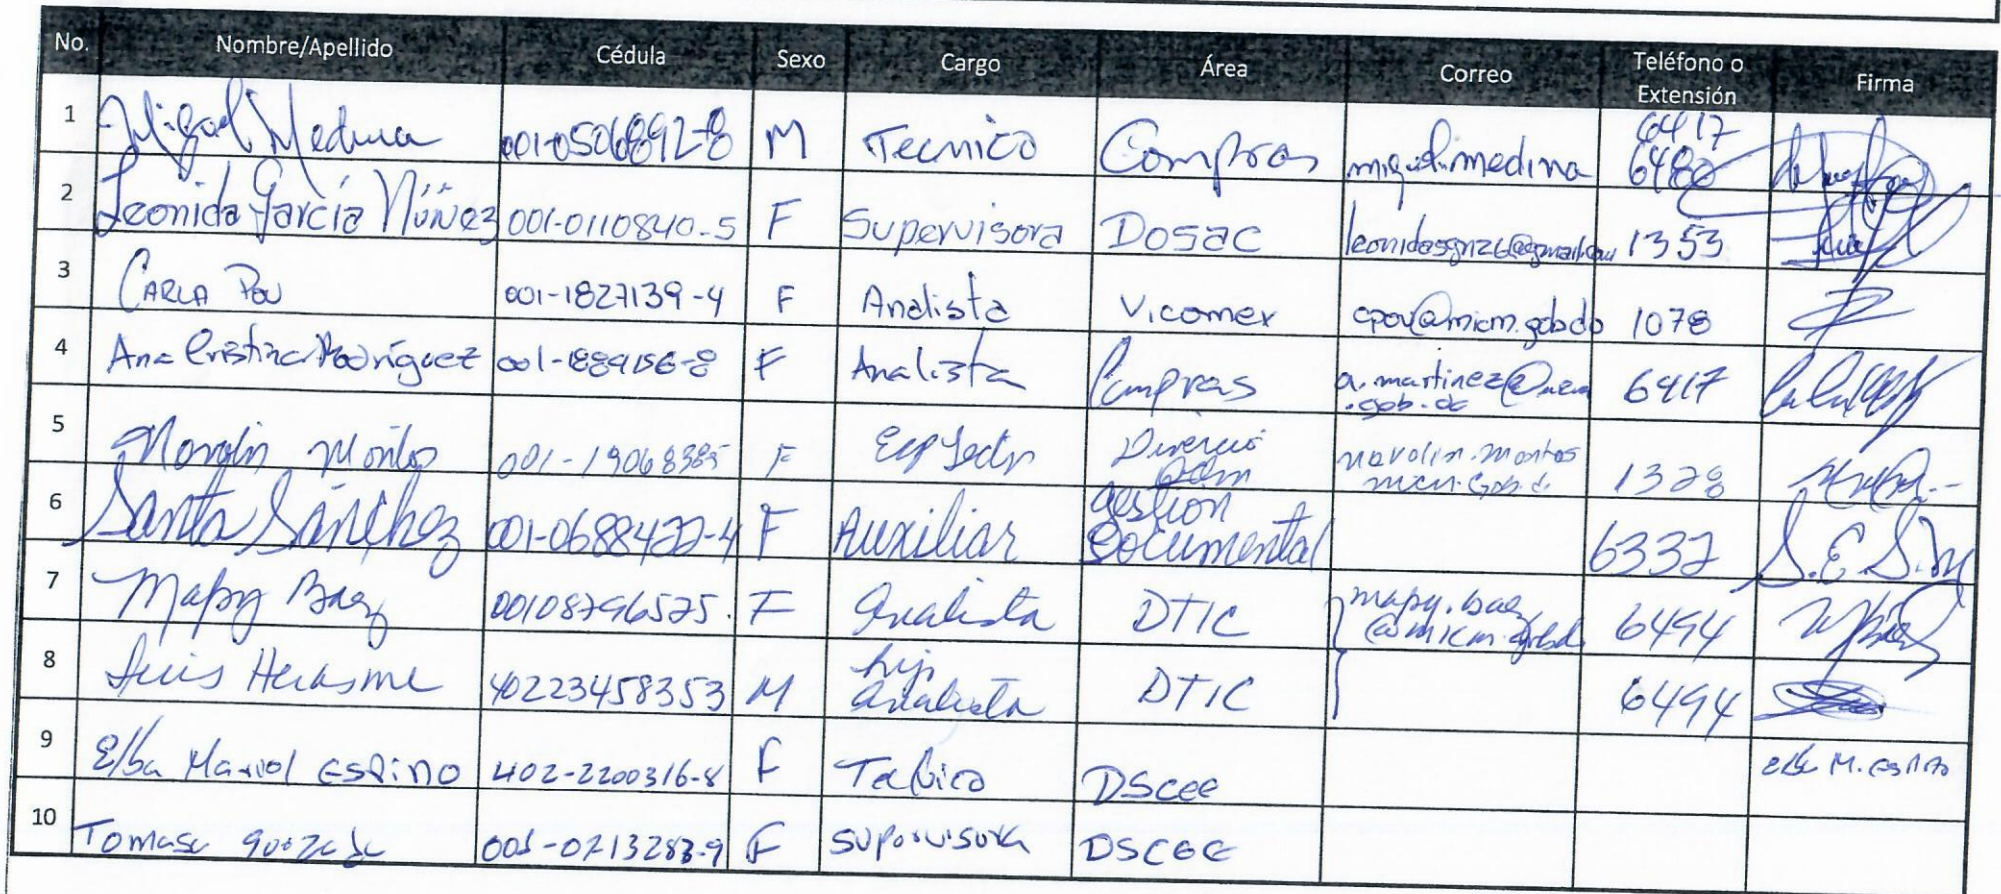 No. Nombre/Apellido Cédula Sexo Cargo Área Correo Teléfono o Extensión Firma
1 Miguel Medina 001-0506892-8 M Tecnico Compras miguel.medina 6417 6480
2 Leonida García Núñez 001-0110840-5 F Supervisora Dosac 1353
3 CARLA POU 001-1827139-4 F Analista Vicomex cpou@micm.gob.do 1078
4 Ana Cristina Rodríguez F Analista Compras a.martinez@ .gob.do 6417
5 Montos 001-19068385 F 1328
6 Santa Sánchez 001-0688422-4 F Auxiliar gestion Documental 6332 S.E.S.M
7 Mapy Baez 00108796525. F Analista DTIC mapy.baez @micm.gob.do 6494
8 Luis Herasme 40223458353 M Analista DTIC 6494
9 Elba Marisol Espino 402-2200316-8 F DScee M. Espino
10 Tomasa 001-0713283-9 F supervisora DSCEE